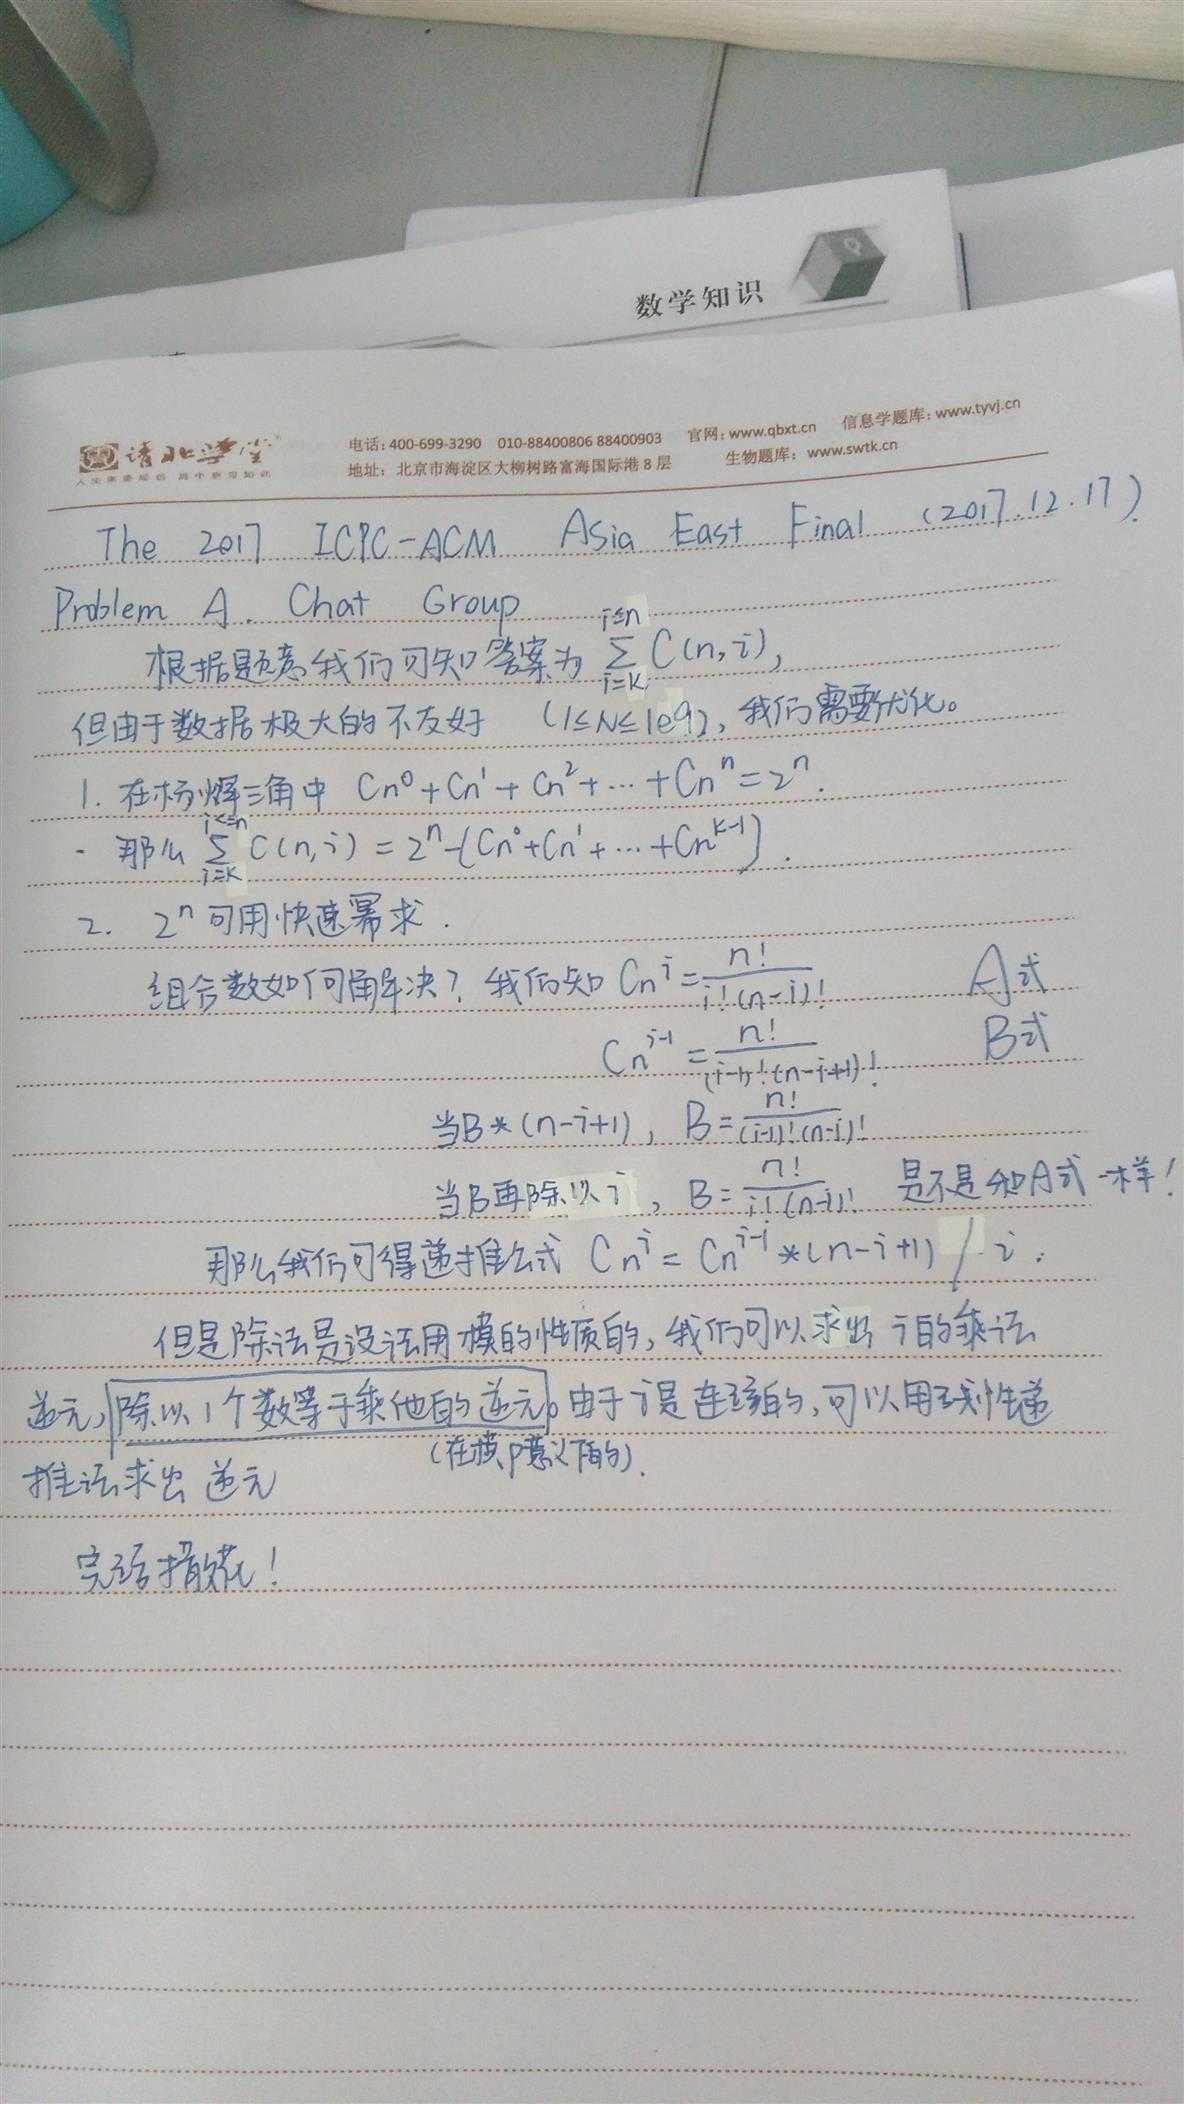 数学知识
清北学堂
电话: 400-699-3290 010-88400806 88400903 官网: www.qbxt.cn 信息学题库: www.tyvj.cn
地址: 北京市海淀区大柳树路富海国际港8层 生物题库: www.swtk.cn
The 2017 ICPC-ACM Asia East Final (2017.12.17)
Problem A. Chat Group
根据题意我们可知答案为 i≤n Σ i=k C(n,i),
但由于数据极大的不友好 (1≤N≤1e9), 我们需要优化。
1. 在杨辉三角中 Cn⁰+Cn¹+Cn²+…+Cnⁿ=2ⁿ.
· 那么 i<=n Σ i=k C(n,i) = 2ⁿ-(Cn⁰+Cn¹+…+Cn^(k-1)).
2. 2ⁿ可用快速幂求.
组合数如何解决? 我们知 Cn^i = n!/(i!(n-i)!) A式
Cn^(i-1) = n!/((i-1)!(n-i+1)!) B式
当B*(n-i+1), B=n!/((i-1)!(n-i)!)
当B再除以i, B=n!/(i!(n-i)!) 是不是和A式一样!
那么我们可得递推公式 Cn^i = Cn^(i-1) *(n-i+1) / i.
但是除法是没法用模的性质的, 我们可以求出 i的乘法
逆元, 除以1个数等于乘他的逆元。由于i是连续的, 可以用线性递
(在模p意义下的).
推法求出逆元
完结撒花!